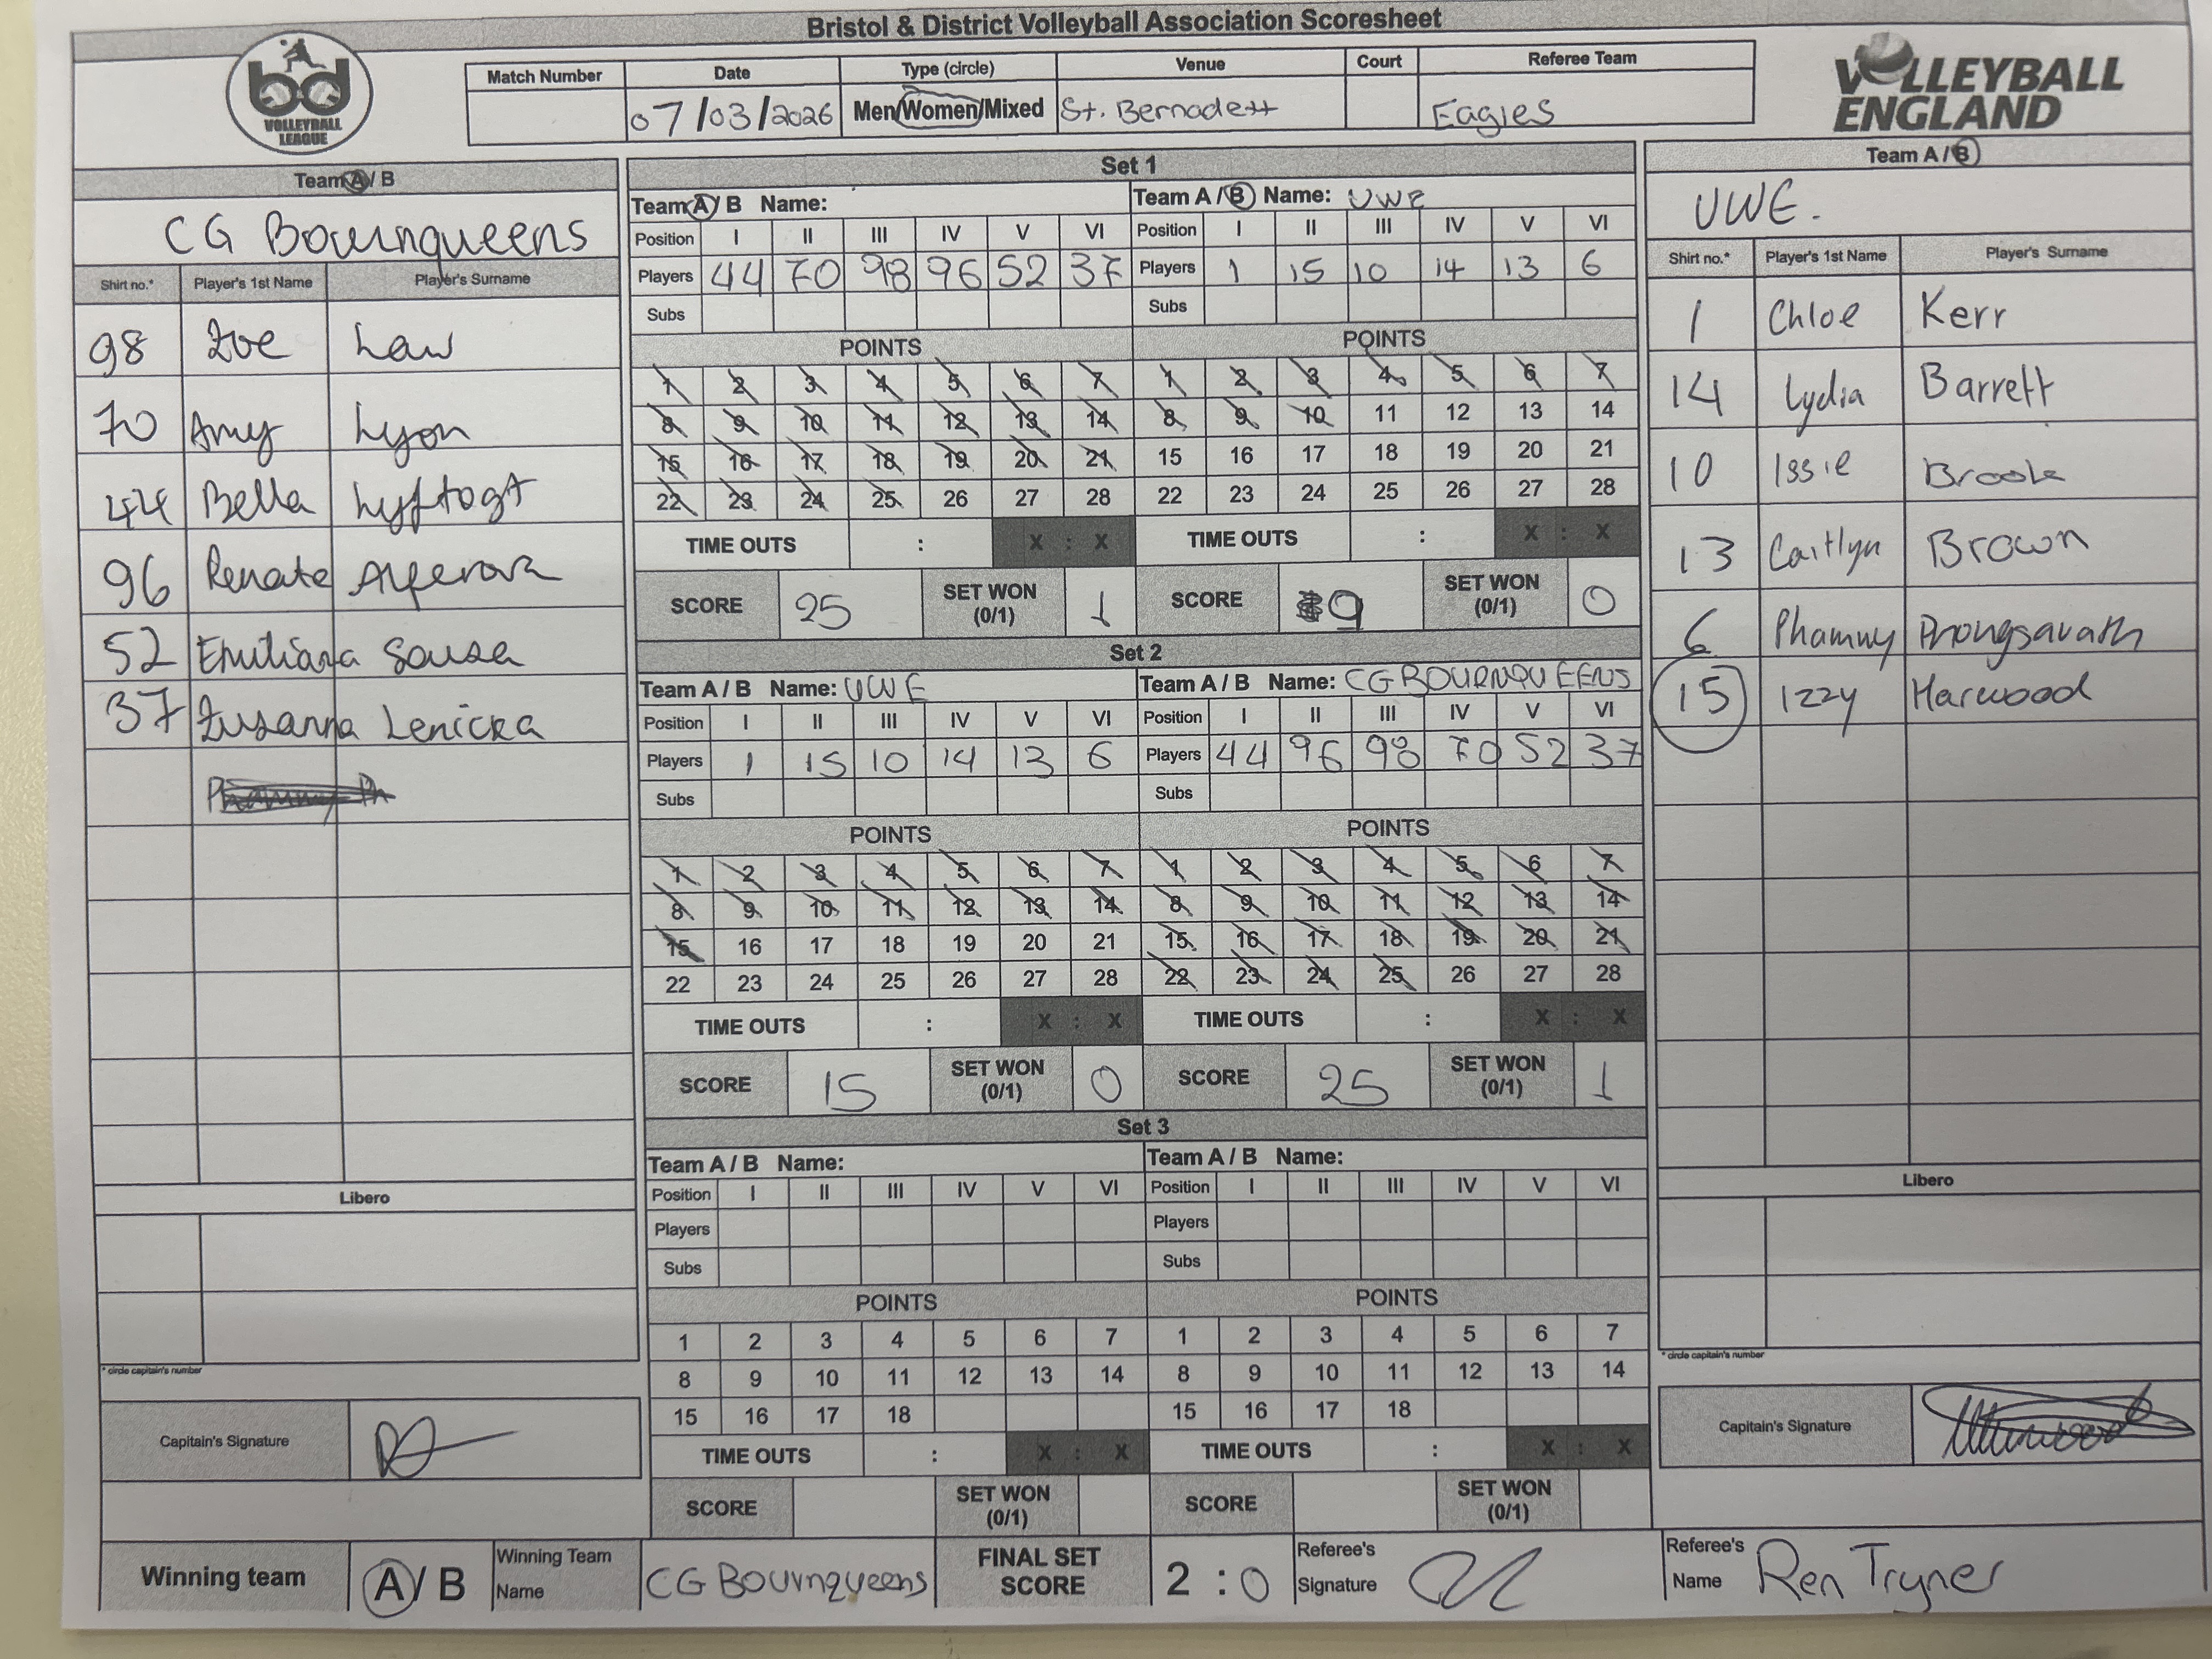 Bristol & District Volleyball Association Scoresheet
bd
VOLLEYBALL
LEAGUE
Match Number Date Type (circle) Venue Court Referee Team
07/03/2026 Men/Women/Mixed St. Bernadett Eagles
VOLLEYBALL
ENGLAND
Team A / B
CG Bournqueens
Shirt no.* Player's 1st Name Player's Surname
98 Zoe Law
70 Amy Lyon
44 Bella Lyftogt
96 Renate
52 Emiliana Sousa
37 Zusanna Lenicka
Libero
* circle capitain's number
Capitain's Signature
Set 1
Team A / B Name:
Position I II III IV V VI
Players 44 70 98 96 52 37
Subs
POINTS
1 2 3 4 5 6 7
8 9 10 11 12 13 14
15 16 17 18 19 20 21
22 23 24 25 26 27 28
TIME OUTS : X : X
SCORE 25 SET WON (0/1) 1
Team A / B Name: UWE
Position I II III IV V VI
Players 1 15 10 14 13 6
Subs
POINTS
1 2 3 4 5 6 7
8 9 10 11 12 13 14
15 16 17 18 19 20 21
22 23 24 25 26 27 28
TIME OUTS : X : X
SCORE 9 SET WON (0/1) 0
Set 2
Team A / B Name: UWE
Position I II III IV V VI
Players 1 15 10 14 13 6
Subs
POINTS
1 2 3 4 5 6 7
8 9 10 11 12 13 14
15 16 17 18 19 20 21
22 23 24 25 26 27 28
TIME OUTS : X : X
SCORE 15 SET WON (0/1) 0
Team A / B Name: CG BOURNQUEENS
Position I II III IV V VI
Players 44 96 98 70 52 37
Subs
POINTS
1 2 3 4 5 6 7
8 9 10 11 12 13 14
15 16 17 18 19 20 21
22 23 24 25 26 27 28
TIME OUTS : X : X
SCORE 25 SET WON (0/1) 1
Set 3
Team A / B Name:
Position I II III IV V VI
Players
Subs
POINTS
1 2 3 4 5 6 7
8 9 10 11 12 13 14
15 16 17 18
TIME OUTS : X : X
SCORE SET WON (0/1)
Team A / B Name:
Position I II III IV V VI
Players
Subs
POINTS
1 2 3 4 5 6 7
8 9 10 11 12 13 14
15 16 17 18
TIME OUTS : X : X
SCORE SET WON (0/1)
Team A / B
UWE.
Shirt no.* Player's 1st Name Player's Surname
1 Chloe Kerr
14 Lydia Barrett
10 Issie Brook
13 Caitlyn Brown
6 Phammy Phongsavath
15 Izzy Harwood
Libero
* circle capitain's number
Capitain's Signature
Winning team A / B Winning Team Name CG Bournqueens FINAL SET SCORE 2 : 0 Referee's Signature Referee's Name Ren Tryner